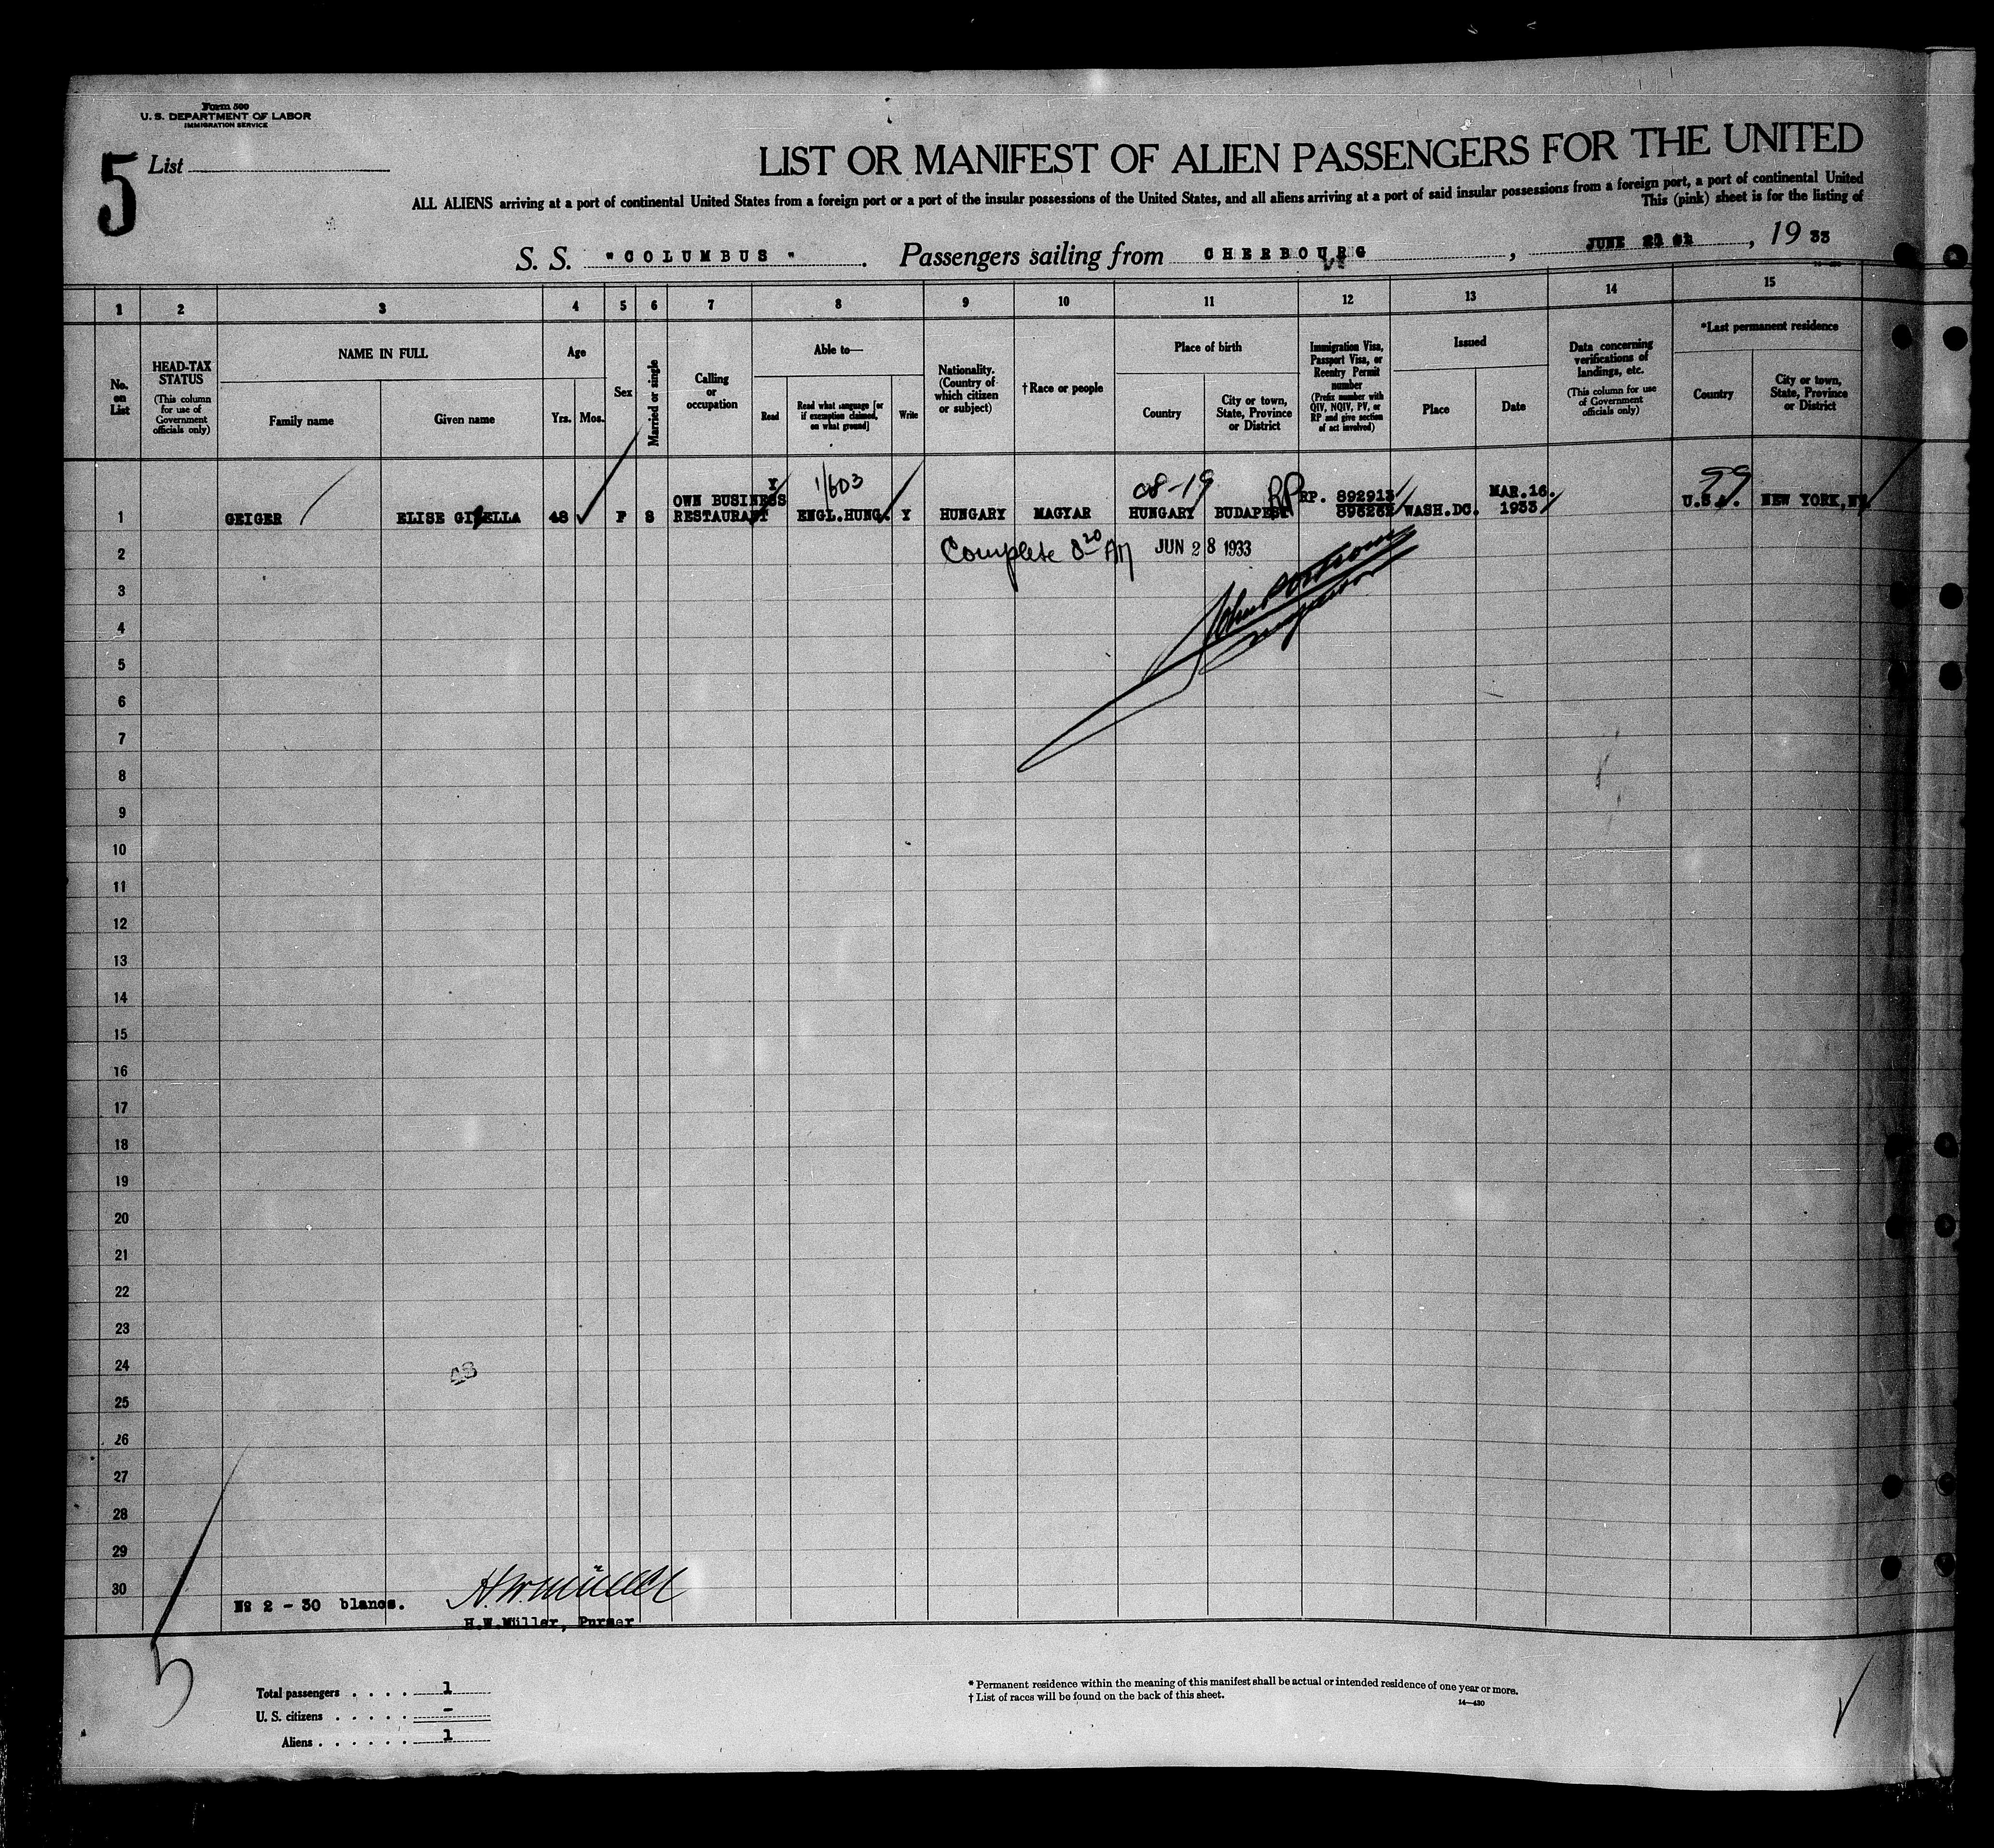 Form 500
U. S. DEPARTMENT OF LABOR
IMMIGRATION SERVICE
5 List
LIST OR MANIFEST OF ALIEN PASSENGERS FOR THE UNITED
ALL ALIENS arriving at a port of continental United States from a foreign port or a port of the insular possessions of the United States, and all aliens arriving at a port of said insular possessions from a foreign port, a port of continental United
This (pink) sheet is for the listing of
S. S. "COLUMBUS". Passengers sailing from CHERBOURG, JUNE, 19 33
1 2 3 4 5 6 7 8 9 10 11 12 13 14 15
No. on List
HEAD-TAX STATUS (This column for use of Government officials only)
NAME IN FULL
Family name
Given name
Age
Yrs.
Mos.
Sex
Married or single
Calling or occupation
Able to—
Read
Read what language [or if exemption claimed, on what ground]
Write
Nationality. (Country of which citizen or subject)
†Race or people
Place of birth
Country
City or town, State, Province or District
Immigration Visa, Passport Visa, or Reentry Permit number (Prefix number with QIV, NQIV, PV, or RP and give section of act involved)
Issued
Place
Date
Data concerning verifications of landings, etc. (This column for use of Government officials only)
*Last permanent residence
Country
City or town, State, Province or District
Y 1/603 08-19 RP 99
OWN BUSINESS RP. 892913 MAR.16. U.S.A. NEW YORK,NY.
1 GEIGER ELISE GISELLA 48 F S RESTAURANT ENGL.HUNG. Y HUNGARY MAGYAR HUNGARY BUDAPEST WASH.DC. 1933
2 Complete 8 20 AM JUN 28 1933
3
4
5
6
7
8
9
10
11
12
13
14
15
16
17
18
19
20
21
22
23
24
48
25
26
27
28
29
30
№ 2 - 30 blancs. H.W.Müller
H.W.Müller, Purser
5
Total passengers . . . . 1
U. S. citizens . . . . . -
Aliens . . . . . . 1
* Permanent residence within the meaning of this manifest shall be actual or intended residence of one year or more.
† List of races will be found on the back of this sheet.
14—430